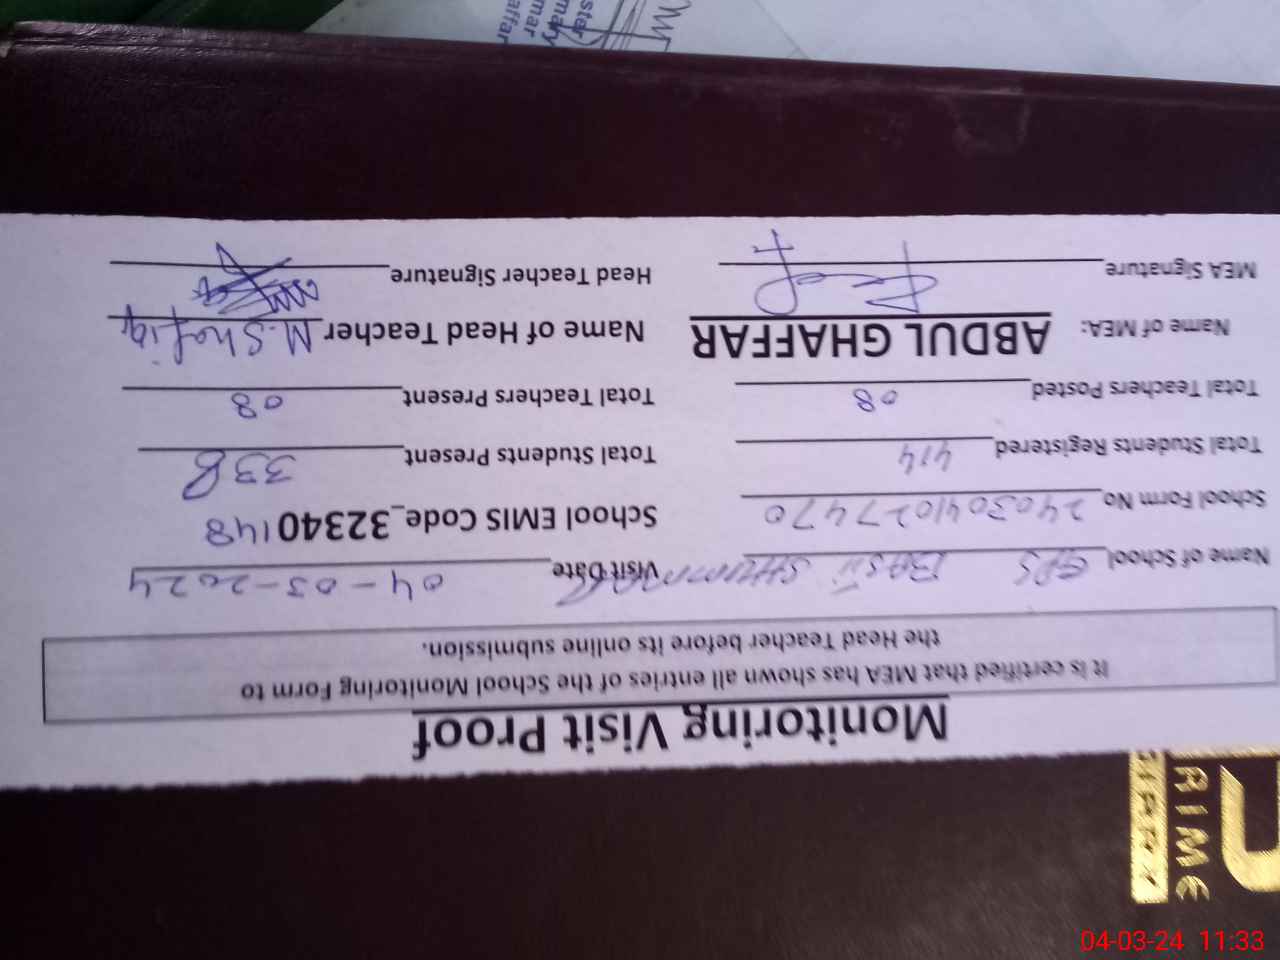 Monitoring Visit Proof
It is certified that MEA has shown all entries of the School Monitoring Form to
the Head Teacher before its online submission.
Name of School GPS BASTI Visit Date 04-03-2024
School Form No 24030410277470 School EMIS Code_32340148
Total Students Registered 414 Total Students Present 338
Total Teachers Posted 08 Total Teachers Present 08
Name of MEA: ABDUL GHAFFAR Name of Head Teacher M.Shafiq
MEA Signature Head Teacher Signature
04-03-24 11:33